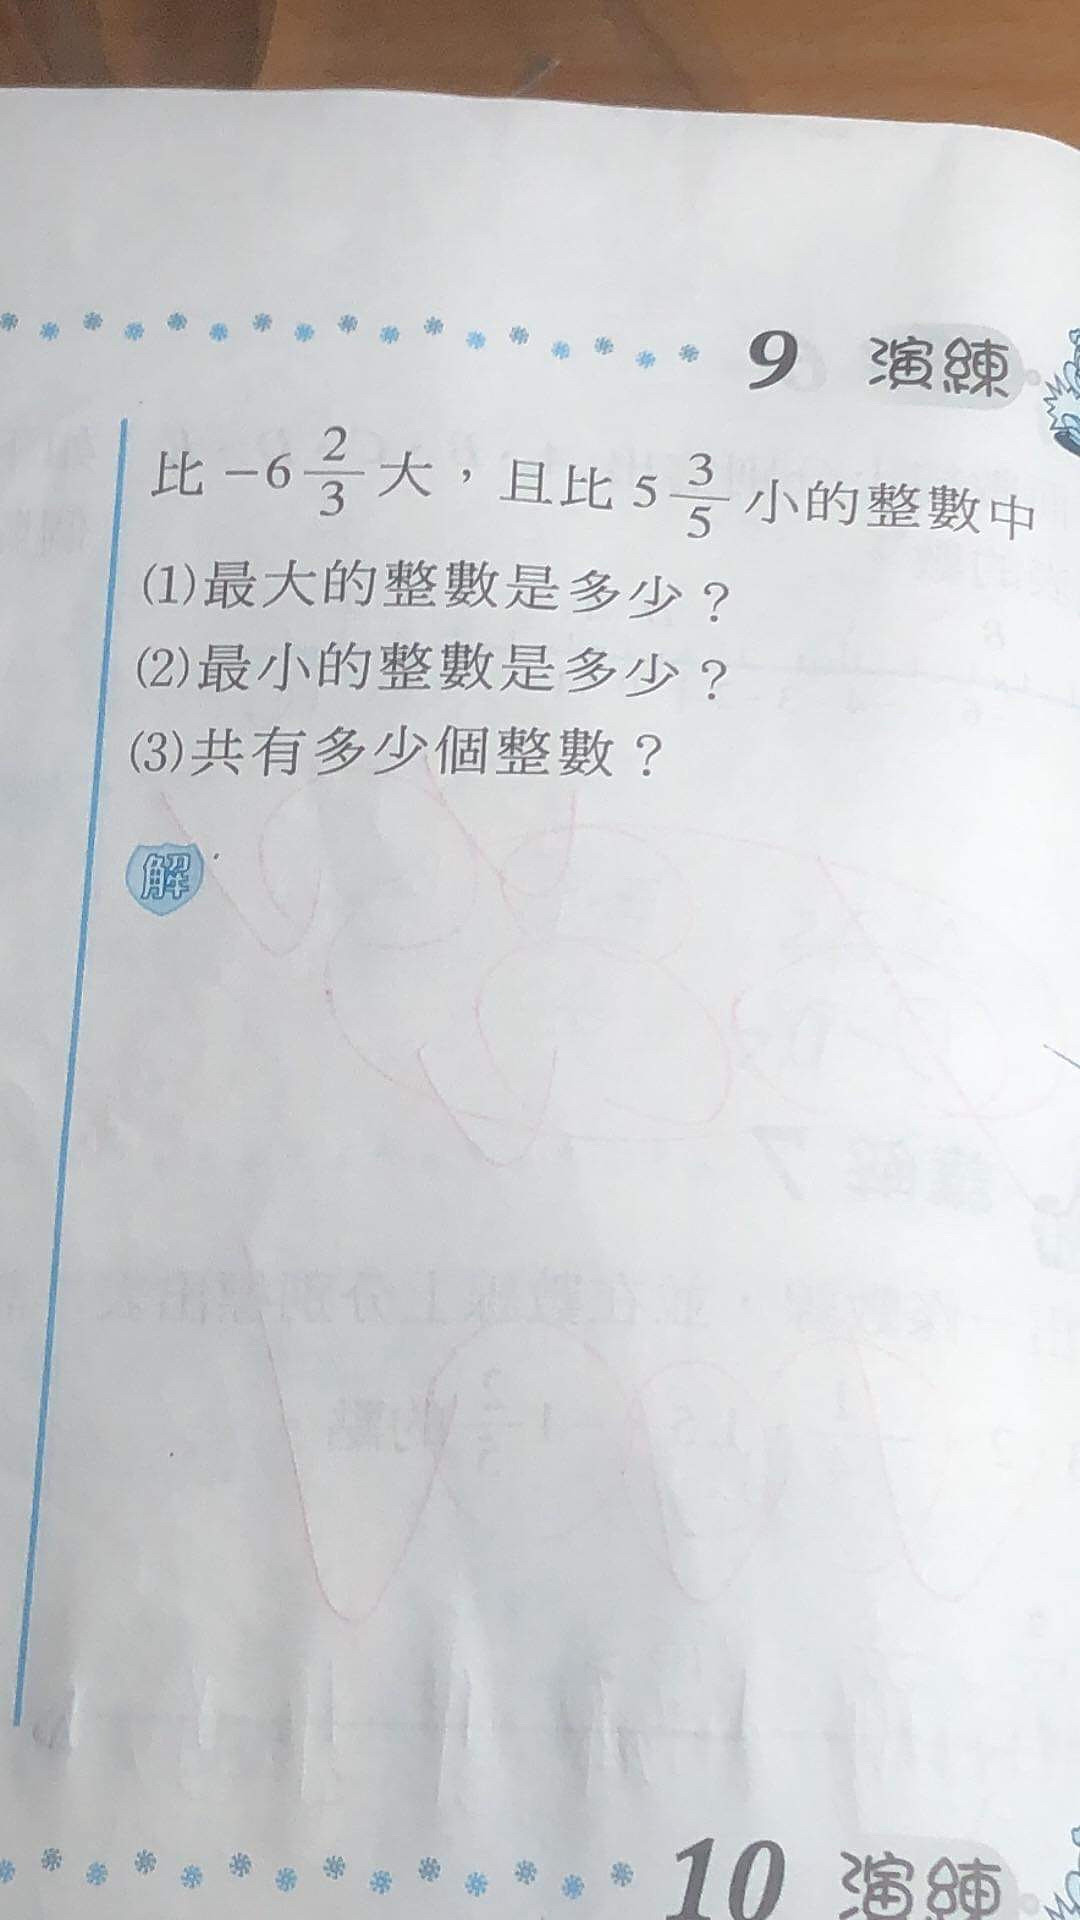 9 演練
比 -6 2/3 大，且比 5 3/5 小的整數中
(1)最大的整數是多少？
(2)最小的整數是多少？
(3)共有多少個整數？
解
10 演練